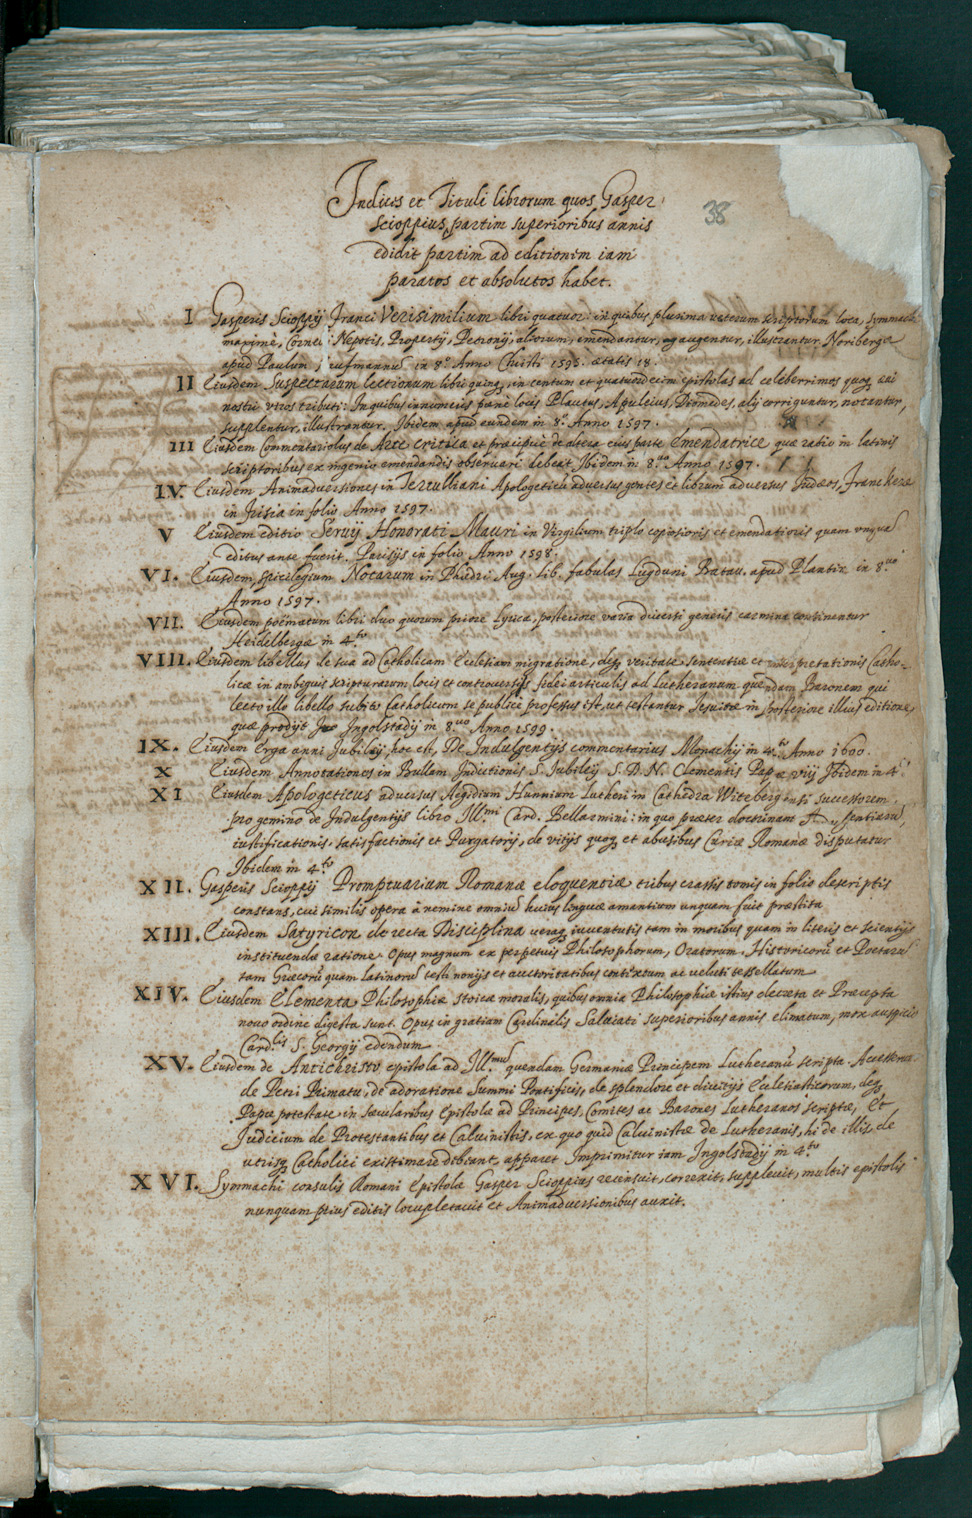 Indices et Tituli librorum quos Gasper
Scioppius, partim superioribus annis
38
edidit partim ad editionem iam
paratos et absolutos habet.
I Gasperis Scioppij Franci Verisimilium libri quatuor: in quibus plurima veterum scriptorum loca, Symmachi
maximè, Cornel: Nepotis, Propertij, Petronij, aliorum, emendantur, augentur, illustrantur. Noribergæ
apud Paulum Kaufmannū in 8.º Anno Christi 1595. ætatis 18.
II Eiusdem Suspectarum lectionum libri quinq, in centum et quatuordecim epistolas ad celeberrimos quosq æui
nostri viros tributi: In quibus innumeris pænè locis Plautus, Apuleius, Diomedes, alij corriguntur, notantur,
supplentur, illustrantur. Ibidem apud eundem in 8.º Anno 1597.
III Eiusdem Commentariolus de Arte critica et præcipuè de altera eius parte Emendatrice quæ ratio in latinis
scriptoribus ex ingenio emendandis observari debeat, Ibidem in 8.uo Anno 1597.
IV. Eiusdem Animadversiones in Tertulliani Apologeticū adversus gentes et librum adversus Judæos, Franckeræ
in Frisia in folio Anno 1597.
V Eiusdem editio Seruij Honorati Mauri in Virgilium triplo copiosioris et emendatioris quam vnquā
editus ante fuerit. Parisijs in folio Anno 1598.
VI. Eiusdem, spicilegium Notarum in Phædri Aug. lib. fabulas Lugduni Batau. apud Plantin. in 8.uo
Anno 1597.
VII. Eiusdem poëmatum libri duo quorum priore Lyrica, posteriore varia diuersi generis carmina continentur
Heidelbergæ in 4.to
VIII. Eiusdem libellus de sua ad Catholicam Ecclesiam migratione, deq veritate sententiæ et interpretationis Catho-
licæ in ambiguis scripturarum locis et controuersijs fidei articulis ad Lutheranum quendam Baronem qui
lecto illo libello subitò Catholicum se publicè professus est, ut testantur Jesuitæ in posteriore illius editione,
quæ prodijt Ingolstadij in 8.uo Anno 1599.
IX. Eiusdem Erga anni Jubilæj, hoc est, De Indulgentijs commentarius Monachij in 4.to Anno 1600.
X Eiusdem Annotationes in Bullam Indictionis S. Jubilej S. D. N. Clementis Papæ viij Ibidem in 4.to
XI Eiusdem Apologeticus adversus Aegidium Hunnium Lutheri in Cathedra Witebergensi successorem,
pro gemino de Indulgentijs libro Ill.mi Card. Bellarmini: in quo præter doctrinam
iustificationis, satisfactionis et Purgatorij, de vitijs quoq et abusibus Curiæ Romanæ disputatur
Ibidem in 4.to
XII. Gasperis Scioppij Promptuarium Romanæ eloquentiæ tribus crassis tomis in folio descriptis
constans, cui similis opera à nemine omniū huius linguæ amantium unquam fuit præstita
XIII. Eiusdem Satyricon de recta Disciplina veraq iuuentutis tam in moribus quam in literis et scientijs
instituendæ ratione. Opus magnum ex perpetuis Philosophorum, Oratorum, Historicorū et Poetarū
tam Græcorū quam latinorū testimonijs et auctoritatibus contextum ac veluti tessellatum
XIV. Eiusdem Elementa Philosophiæ stoicæ moralis, quibus omnia Philosophiæ istius decreta et Præcepta
nouo ordine digesta sunt. Opus in gratiam Cardinalis Saluiati superioribus annis elimatum, mox auspicio
Card.lis S. Georgij edendum
XV. Eiusdem de Antichristo epistola ad Ill.mū quendam Germaniæ Principem Lutheranū scripta.
de Petri Primatu, de adoratione Summi Pontificis, de splendore et diuitijs Ecclesiasticorum, deq
Papæ potestate in sæcularibus Epistolæ ad Principes, Comites ac Barones Lutheranos scriptæ, Et
Judicium de Protestantibus et Caluinistis, ex quo quid Caluinistæ de Lutheranis, hi de illis, de
utrisq Catholici existimare debeant, apparet Imprimitur iam Ingolstadij in 4.to
XVI. Symmachi consulis Romani Epistolæ Gasper Scioppius recensuit, correxit, suppleuit, multis epistolis
nunquam prius editis locupletauit et Animaduersionibus auxit.